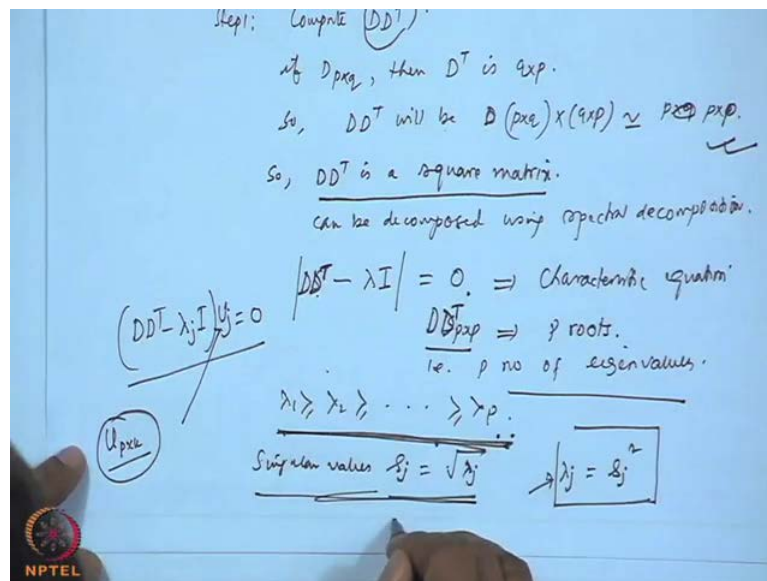 Step1: Compute (DDᵀ)
if D_pxq, then Dᵀ is qxp.
So, DDᵀ will be D (pxq) x (qxp) ≃ pxp.
So, DDᵀ is a square matrix.
can be decomposed using spectral decomposition.
|DDᵀ - λI| = 0. ⇒ Characteristic equation
(DDᵀ - λⱼI)uⱼ = 0
DDᵀ_pxp ⇒ p roots.
i.e. p no of eigenvalues.
λ₁ ≥ λ₂ ≥ . . . ≥ λp.
U_pxk
Singular values δⱼ = √λⱼ → λⱼ = δⱼ²
NPTEL